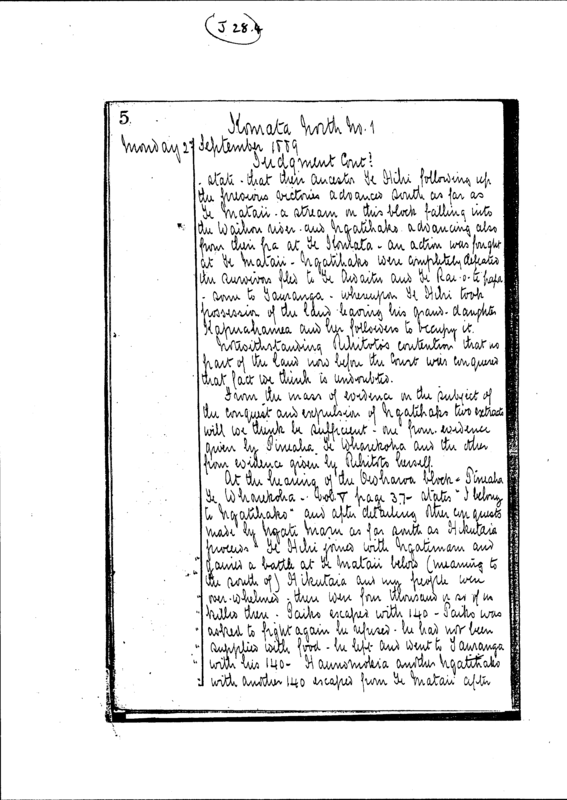 J 28.4
5.
Komata North No. 1
Monday 27 September 1889
Judgment Cont?
- state - that their ancestor Te Hihi following up
the previous victories advanced south as far as
Te Mataii - a stream on this block falling into
the Waihou river - and Ngatihako advancing also
from their pa at Te Komata - an action was fought
at Te Mataii - Ngatihako were completely defeated
the survivors fled to Te Awaiti and Te Rae-o-te papa
- some to Tauranga - whereupon Te Hihi took
possession of the land leaving his grand-daughter
and her followers to occupy it.
Notwithstanding Rihitoto's contention that no
part of the land now before the Court was conquered
that fact we think is undoubted.
From the mass of evidence on the subject of
the conquest and expulsion of Ngatihako two extracts
will we think be sufficient - one from evidence
given by Pineaha Te Wharekoha and the other
from evidence given by Rihitoto herself.
At the hearing of the Owharoa block - Pineaha
Te Wharekoha - Vol V page 37 - states "I belong
to Ngatihako" and after detailing other conquests
made by Ngati Maru as far south as Hikutaia
proceeds "Te Hihi joined with Ngatimaru and
gained a battle at Te Mataii below (meaning to
" the south of) Hikutaia and my people were
" over-whelmed - there were four thousand or so of us
" killed there - Taiko escaped with 140 - Taiko was
" asked to fight again he refused - he had not been
" supplied with food - he left and went to Tauranga
" with his 140 - another Ngatihako
" with another 140 escaped from Te Mataii after